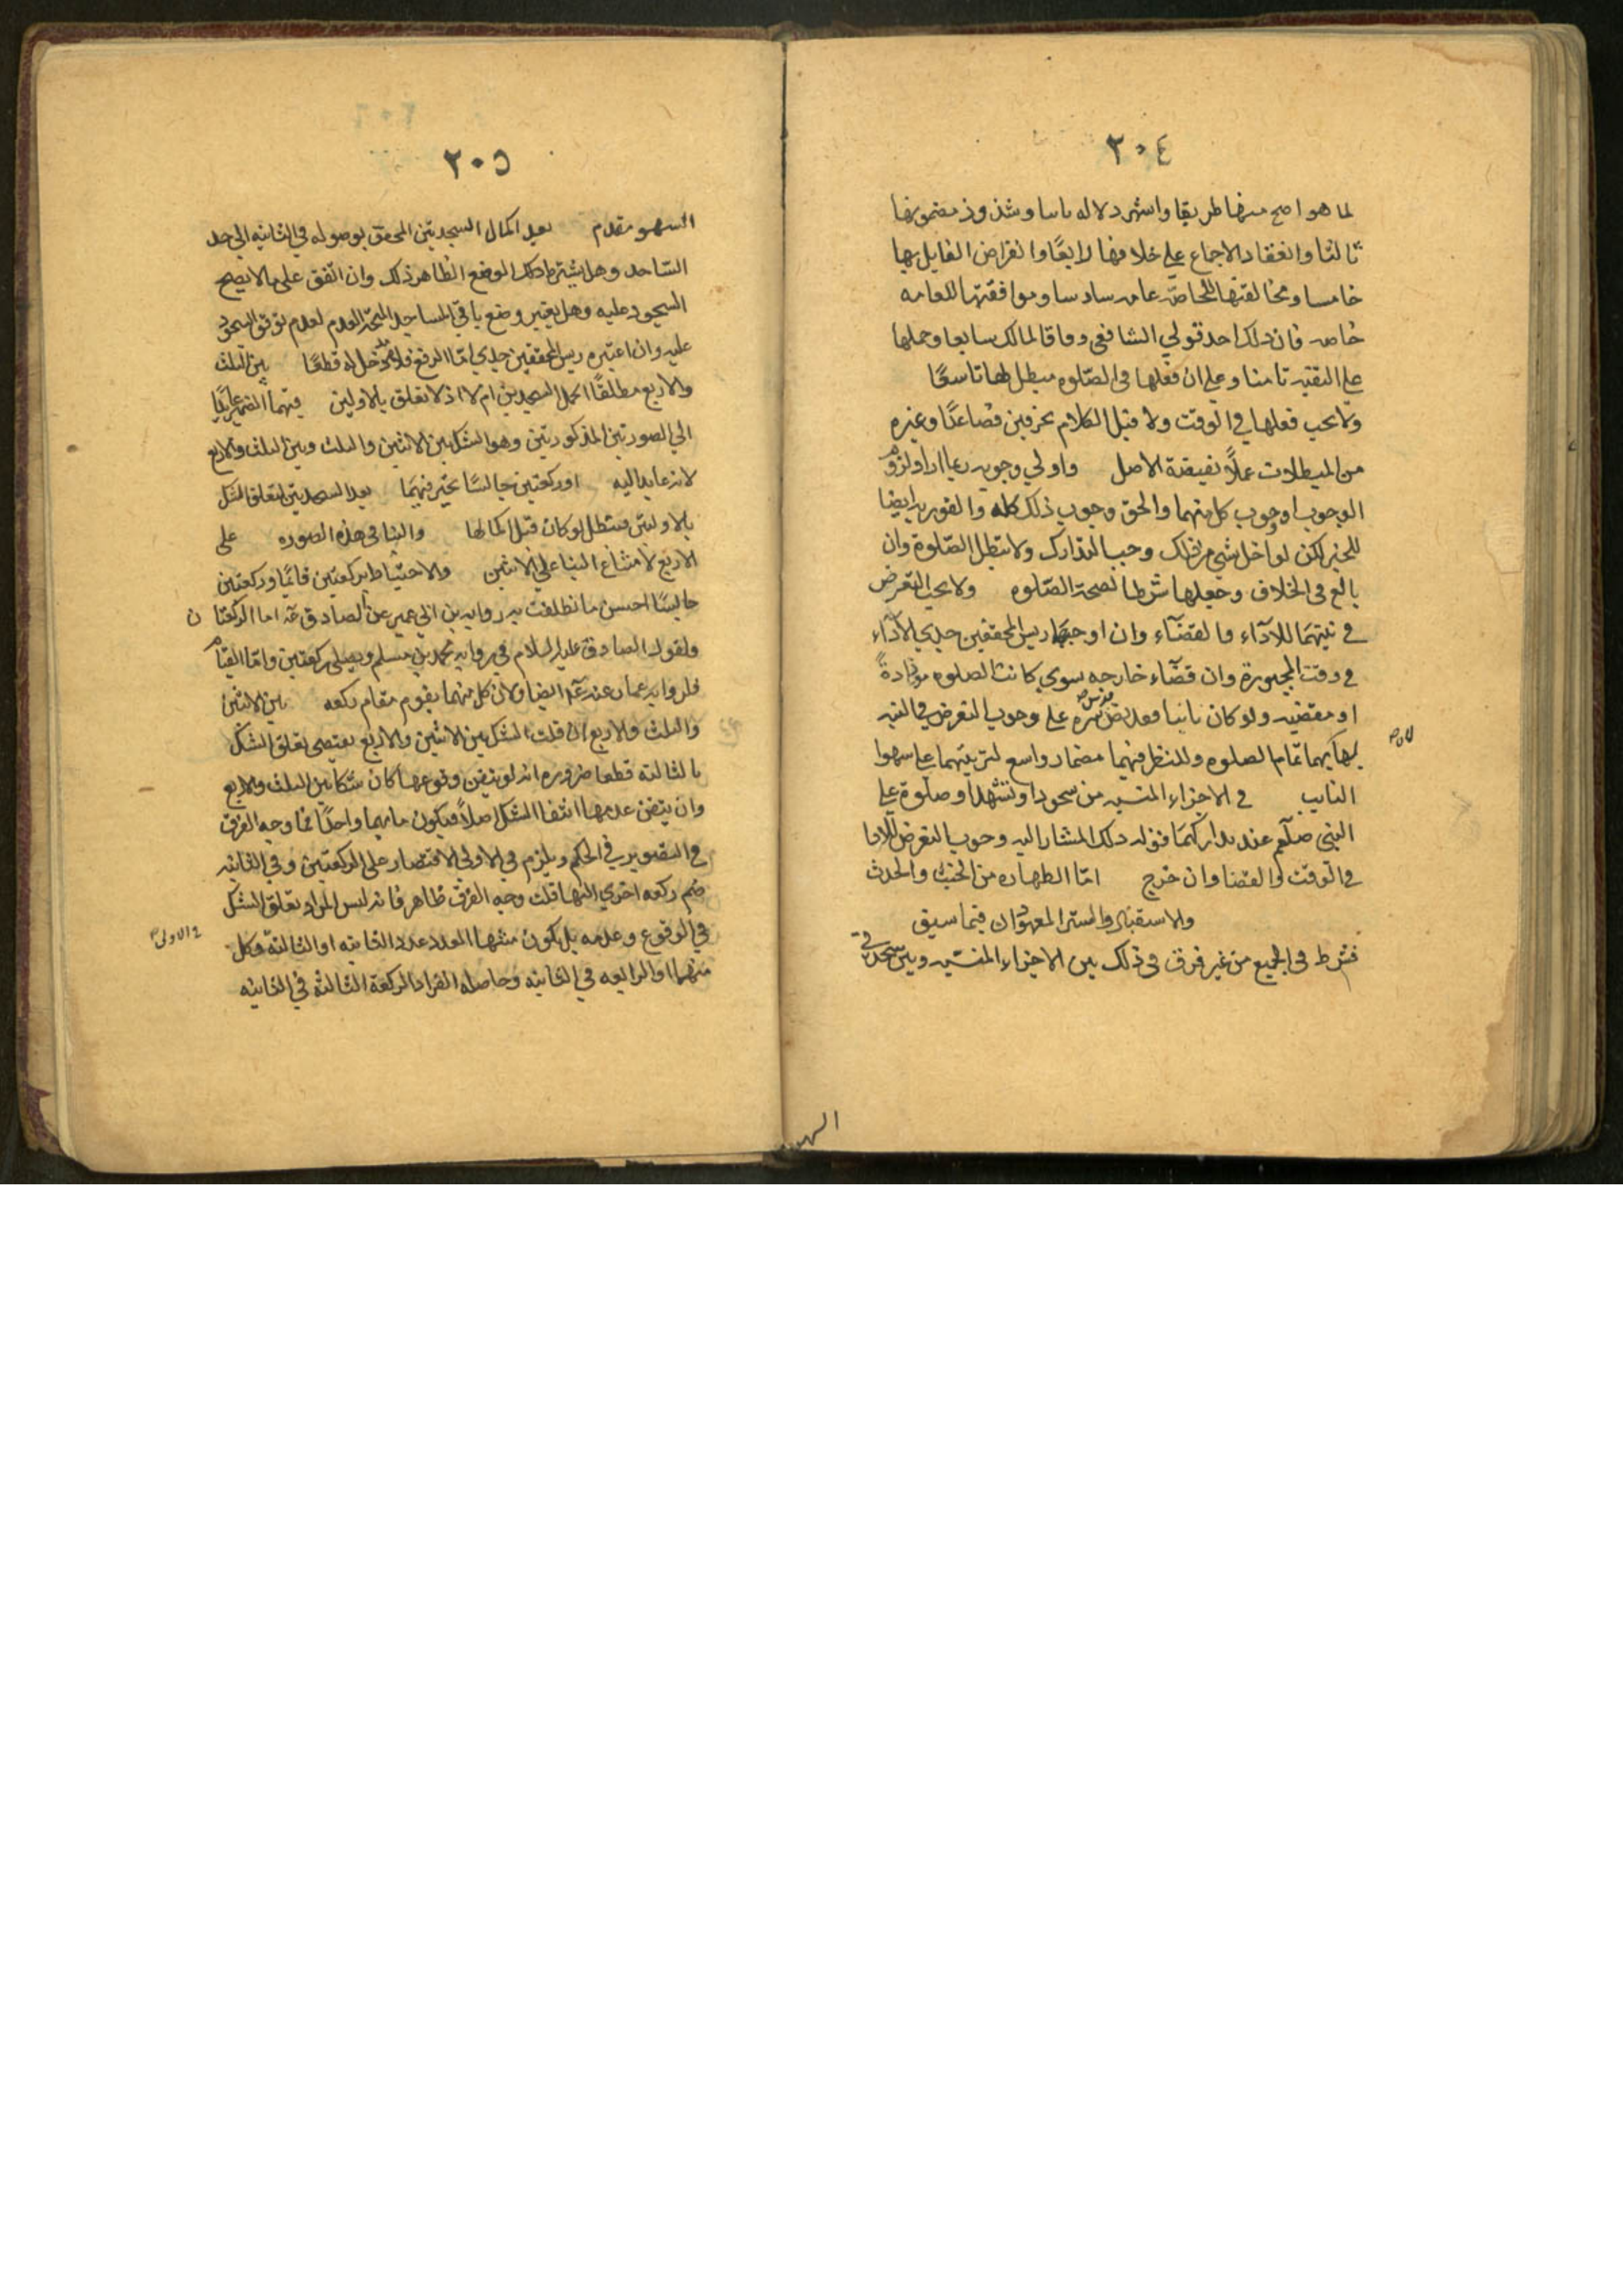 ٢٠٤
لما هو اصح منها طريقا واشهر دلاله ثانيا وشذوذ مضمونها
ثالثا وانعقاد الاجماع على خلافها رابعًا وانقراض القايل بها
خامسا ومخالفتها للخاصّه عامه سادسا وموافقتها للعامه
خاصه فان ذلك احد قولي الشافعي وفاقا لمالك سابعا وحملها
على التقيه ثامنا وعلى ان فعلها في الصّلوه مبطل لها تاسعًا
ولا يجب فعلها في الوقت ولا قبل الكلام بحرفين فصاعدًا وغيره
من المبطلات عملًا بقضية الاصل واولي وجوبه
الوجوب او وجوب كل منهما والحق وجوب ذلك كله والفوريه ايضا
للخبر لكن لو اخل بشي من ذلك وجب التدارك ولا تبطل الصّلوة وان
بالغ في الخلاف وجعلها شرطا لصحة الصّلوه ولا يجب التعرض
في نيتهما للاداء والقضاء وان اوجبهما ريس المحققين جدي للاداء
في وقت المجبورة وان قضاء خارجه سوي كانت الصلوه موداةً
او مقضيه ولو كان نايبا فقد نص على وجوب التعرض في النيه
تمام الصلوه وللنظر فيهما مضمار واسع لترتبهما على سهوا
النايب في الاجزاء المنسيه من سجود او تشهد او صلوة على
النبى صلعم عند تداركها فنزله ذلك المشار اليه وجوب التعرض للادا
في الوقت والقضا وان خرج امّا الطهاره من الخبث والحدث
والاستقبال والستر المعهودان فيما سبق
فشرط في الجميع من غير فرق في ذلك بين الاجزاء المنسيه وبين سجدتي
السهو
٢٠٥
السهو مقدم بعد اكمال السجدتين المحقق بوصوله في الثانيه الى حد
السّاجد وهل يشترط ذلك الوضع الظاهر ذلك وان اتفق على ما لا يصح
السجود عليه وهل يعتبر وضع باقي المساجد العدم لعدم توقف السجود
عليه وان اعتبره ريس المحققين جدي امّا الرفع فلا مدخل له قطعًا بين الثلث
والاربع مطلقًا اكمل السجدتين ام لا اذ لا تعلق بالاولين فيهما الضمير عايدًا
الي الصورتين المذكورتين وهو الشك بين الاثنين والثلث وبين الثلث والاربع
لانه عايد اليه او ركعتين جالسًا تخير فيهما بعد السجدتين لتعلق الشك
بالاوليين فتبطل لو كان قبل اكمالها والبنا في هذه الصوره على
الاربع لامتناع البنا على الاثنين والاحتياط بركعتين قائمًا وركعتين
جالسًا احسن ما نطقت به روايه بن ابي عمير عن الصادق عه اما الركعتان
ولقول الصادق عليه السلام في روايه محمد بن مسلم ويصلي ركعتين وامّا القيام
فلروايه عمار عنه عه ايضا ولان كل منهما يقوم مقام ركعه بين الاثنين
والثلث والاربع ان قلت الشك بين الاثنين والاربع يقتضى تعلق الشك
بالثالثه قطعا ضروره انه لو تيقن وقوعها كان شكا بين الثلث والاربع
وان تيقن عدمها انتفا الشك اصلًا فيكون مابهما واحدًا فما وجه الفرق
في التصوير في الحكم ويلزم في الاولى الاقتصار على الركعتين وفي الثانيه
ضم ركعه اخري اليها قلت وجه الفرق ظاهر فانه ليس المراد بتعلق الشك
في الوقوع وعدمه بل يكون منتهى العدد عدد الثانيه او الثالثة وكل
منهما او الرابعه في الثانيه وحاصله انفراد الركعة الثالثة في الثانيه
في الاولى